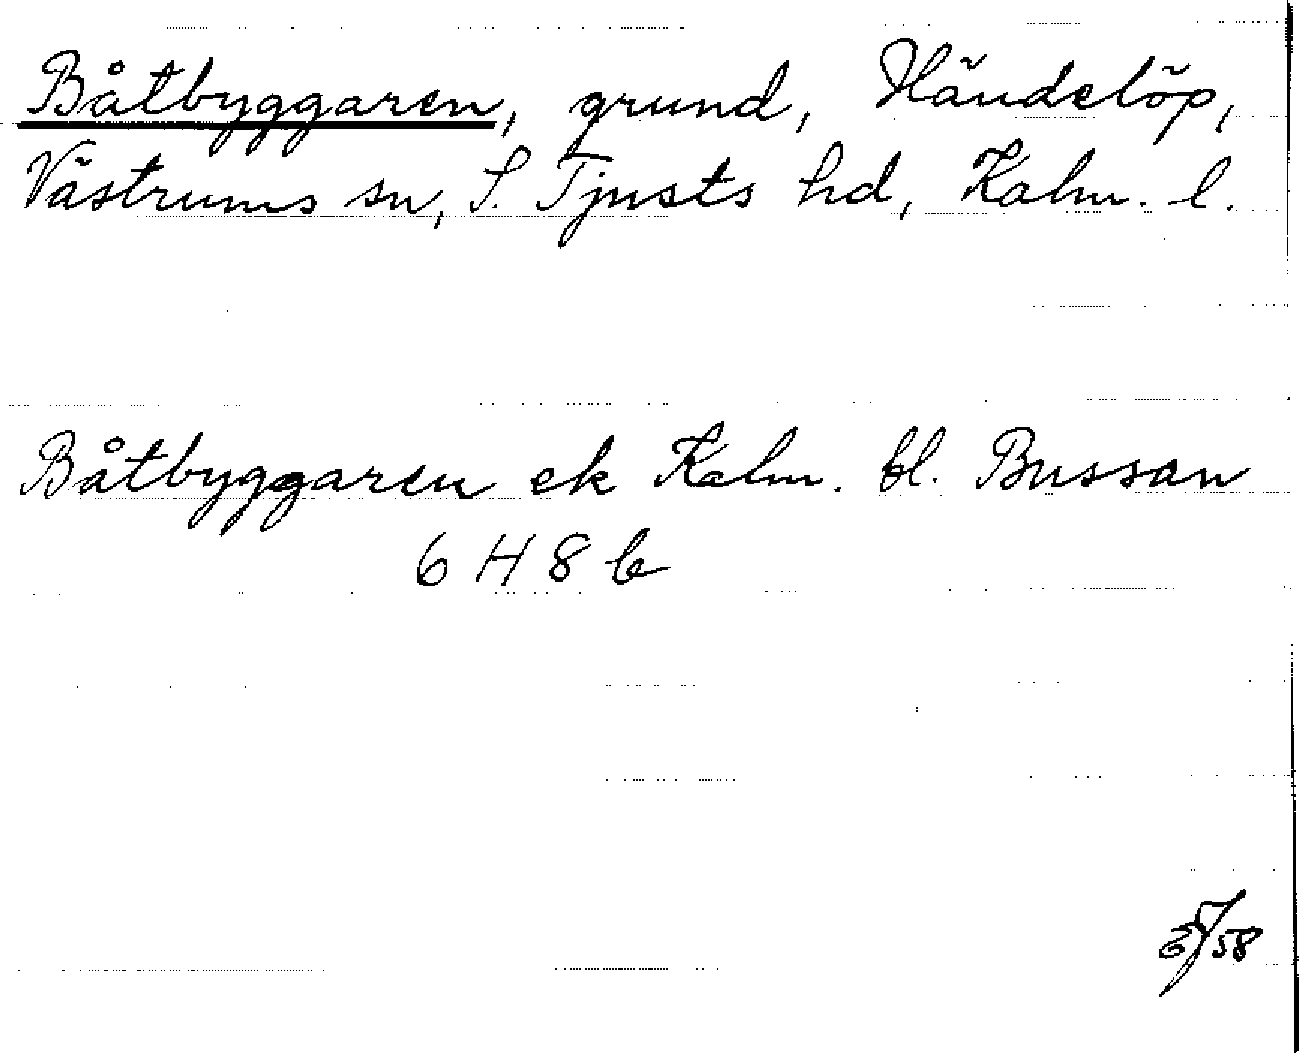 Båtbyggaren, grund, Händelöp,
Västrums sn, S. Tjusts hd, Kalm. l.
Båtbyggaren ek Kalm. bl. Bussan
6 H 8 b